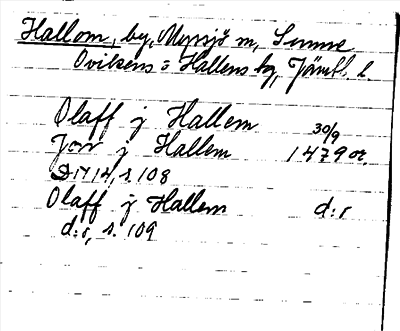 Hallom, by, Myssjö sn, Sunne
Ovikens o Hallens tg, Jämtl. l.
Olaff j Hallem 30/9
Jon j Hallem 1479 or.
DN 14, s. 108
Olaff j Hallem d:r
d:r, s. 109